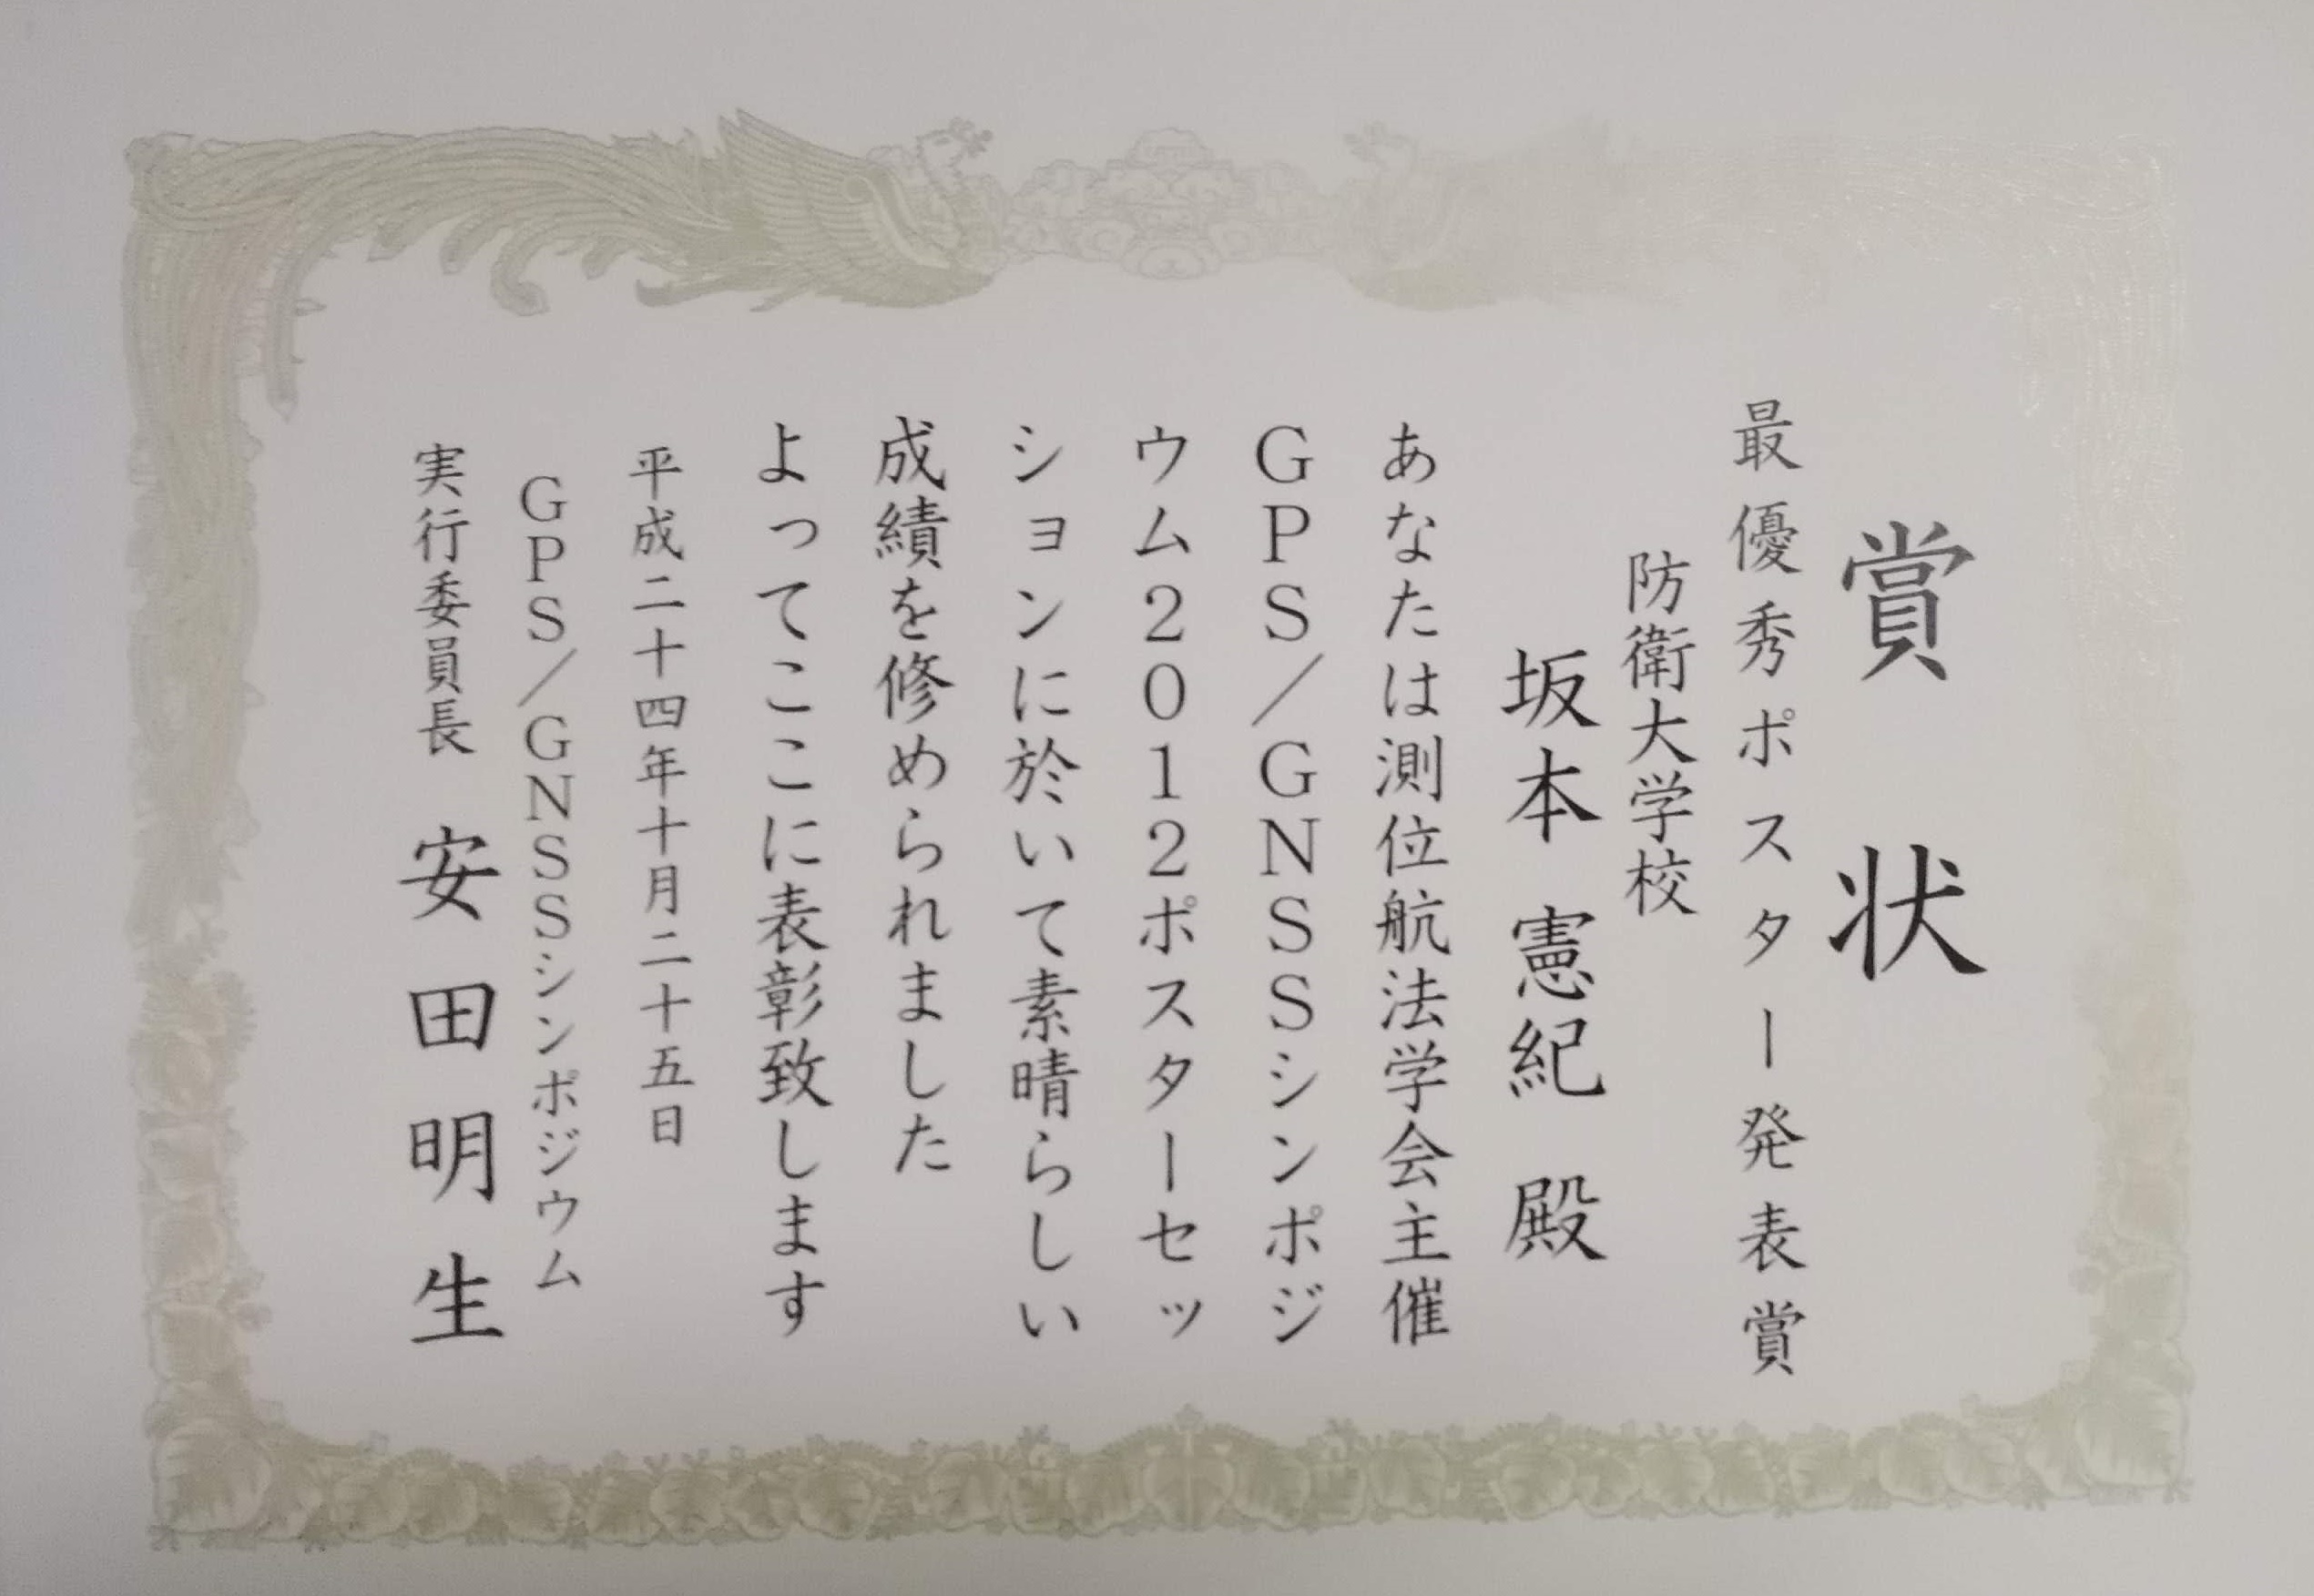 賞状
最優秀ポスター発表賞
防衛大学校
坂本 憲紀 殿
あなたは測位航法学会主催
GPS/GNSSシンポジ
ウム2012ポスターセッ
ションに於いて素晴らしい
成績を修められました
よってここに表彰致します
平成二十四年十月二十五日
GPS/GNSSシンポジウム
実行委員長 安田明生